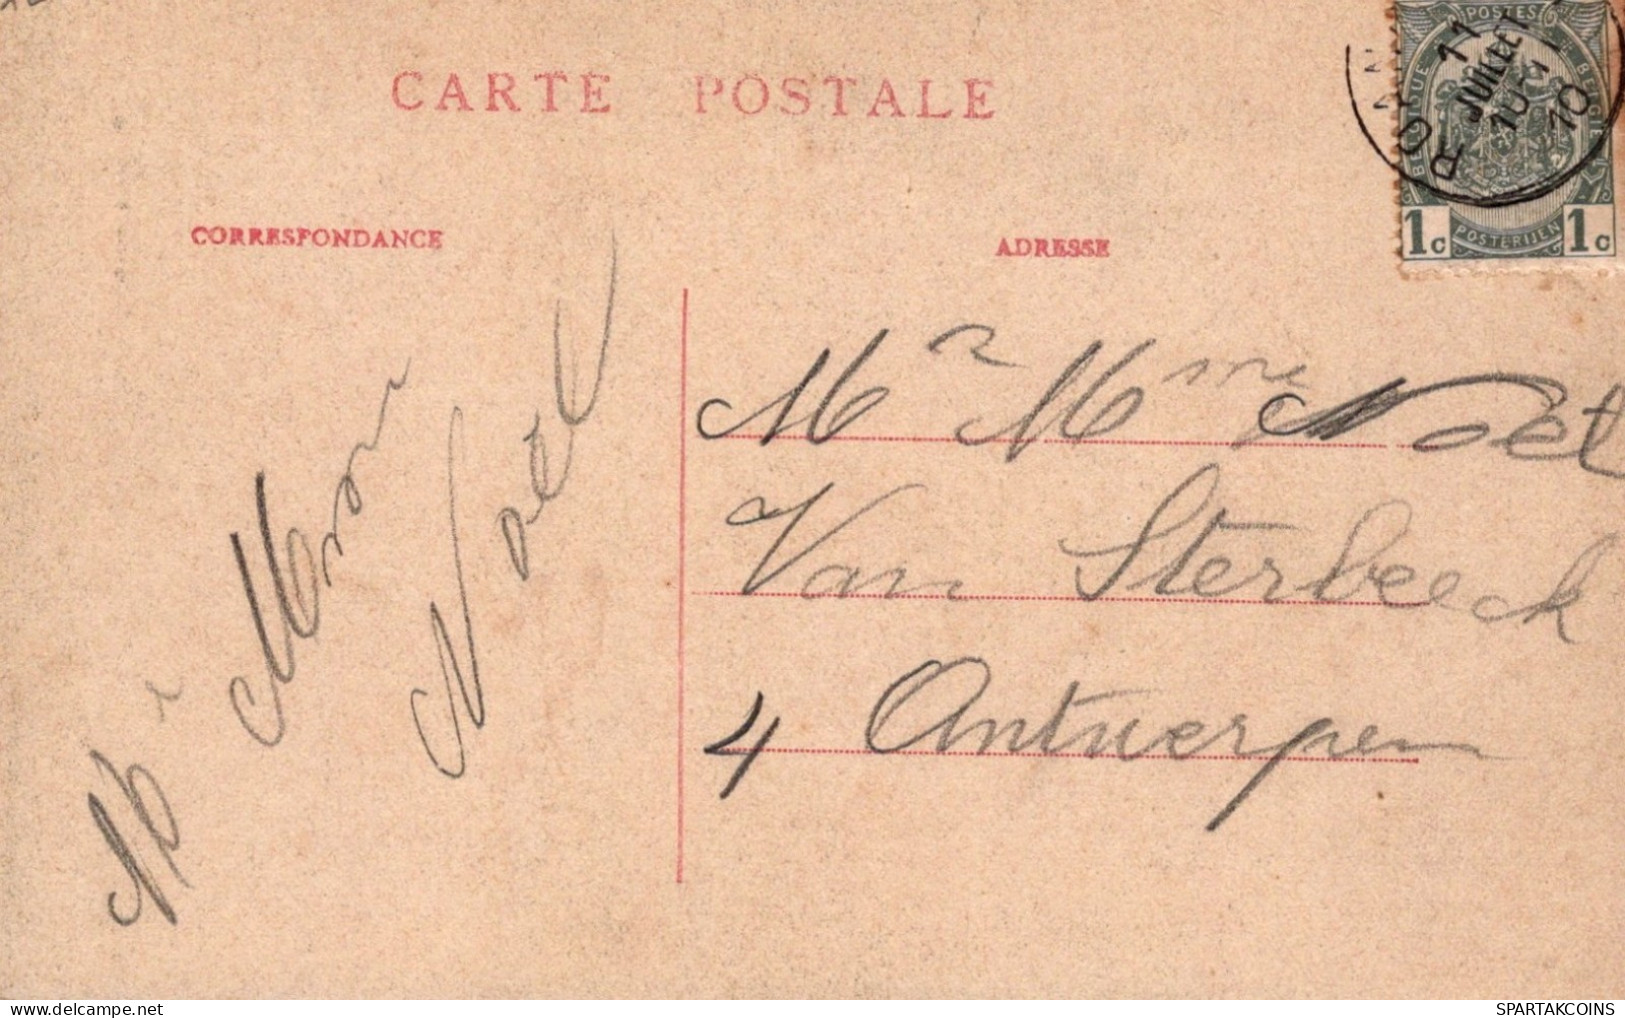 CARTE POSTALE
CORRESPONDANCE
ADRESSE
POSTES
BELGIQUE BELGIE
1c POSTERIJEN 1c
11
JUILLET
10
10
Mr Mme Noël
Van Sterbeeck
4 Antwerpen
Mr Mme
Noël
SPARTAKCOINS
delcampe.net